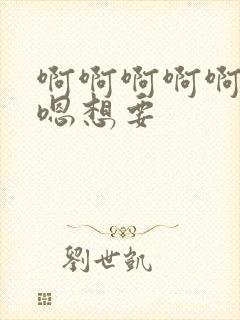 啊啊啊啊啊
嗯想要
劉世凱